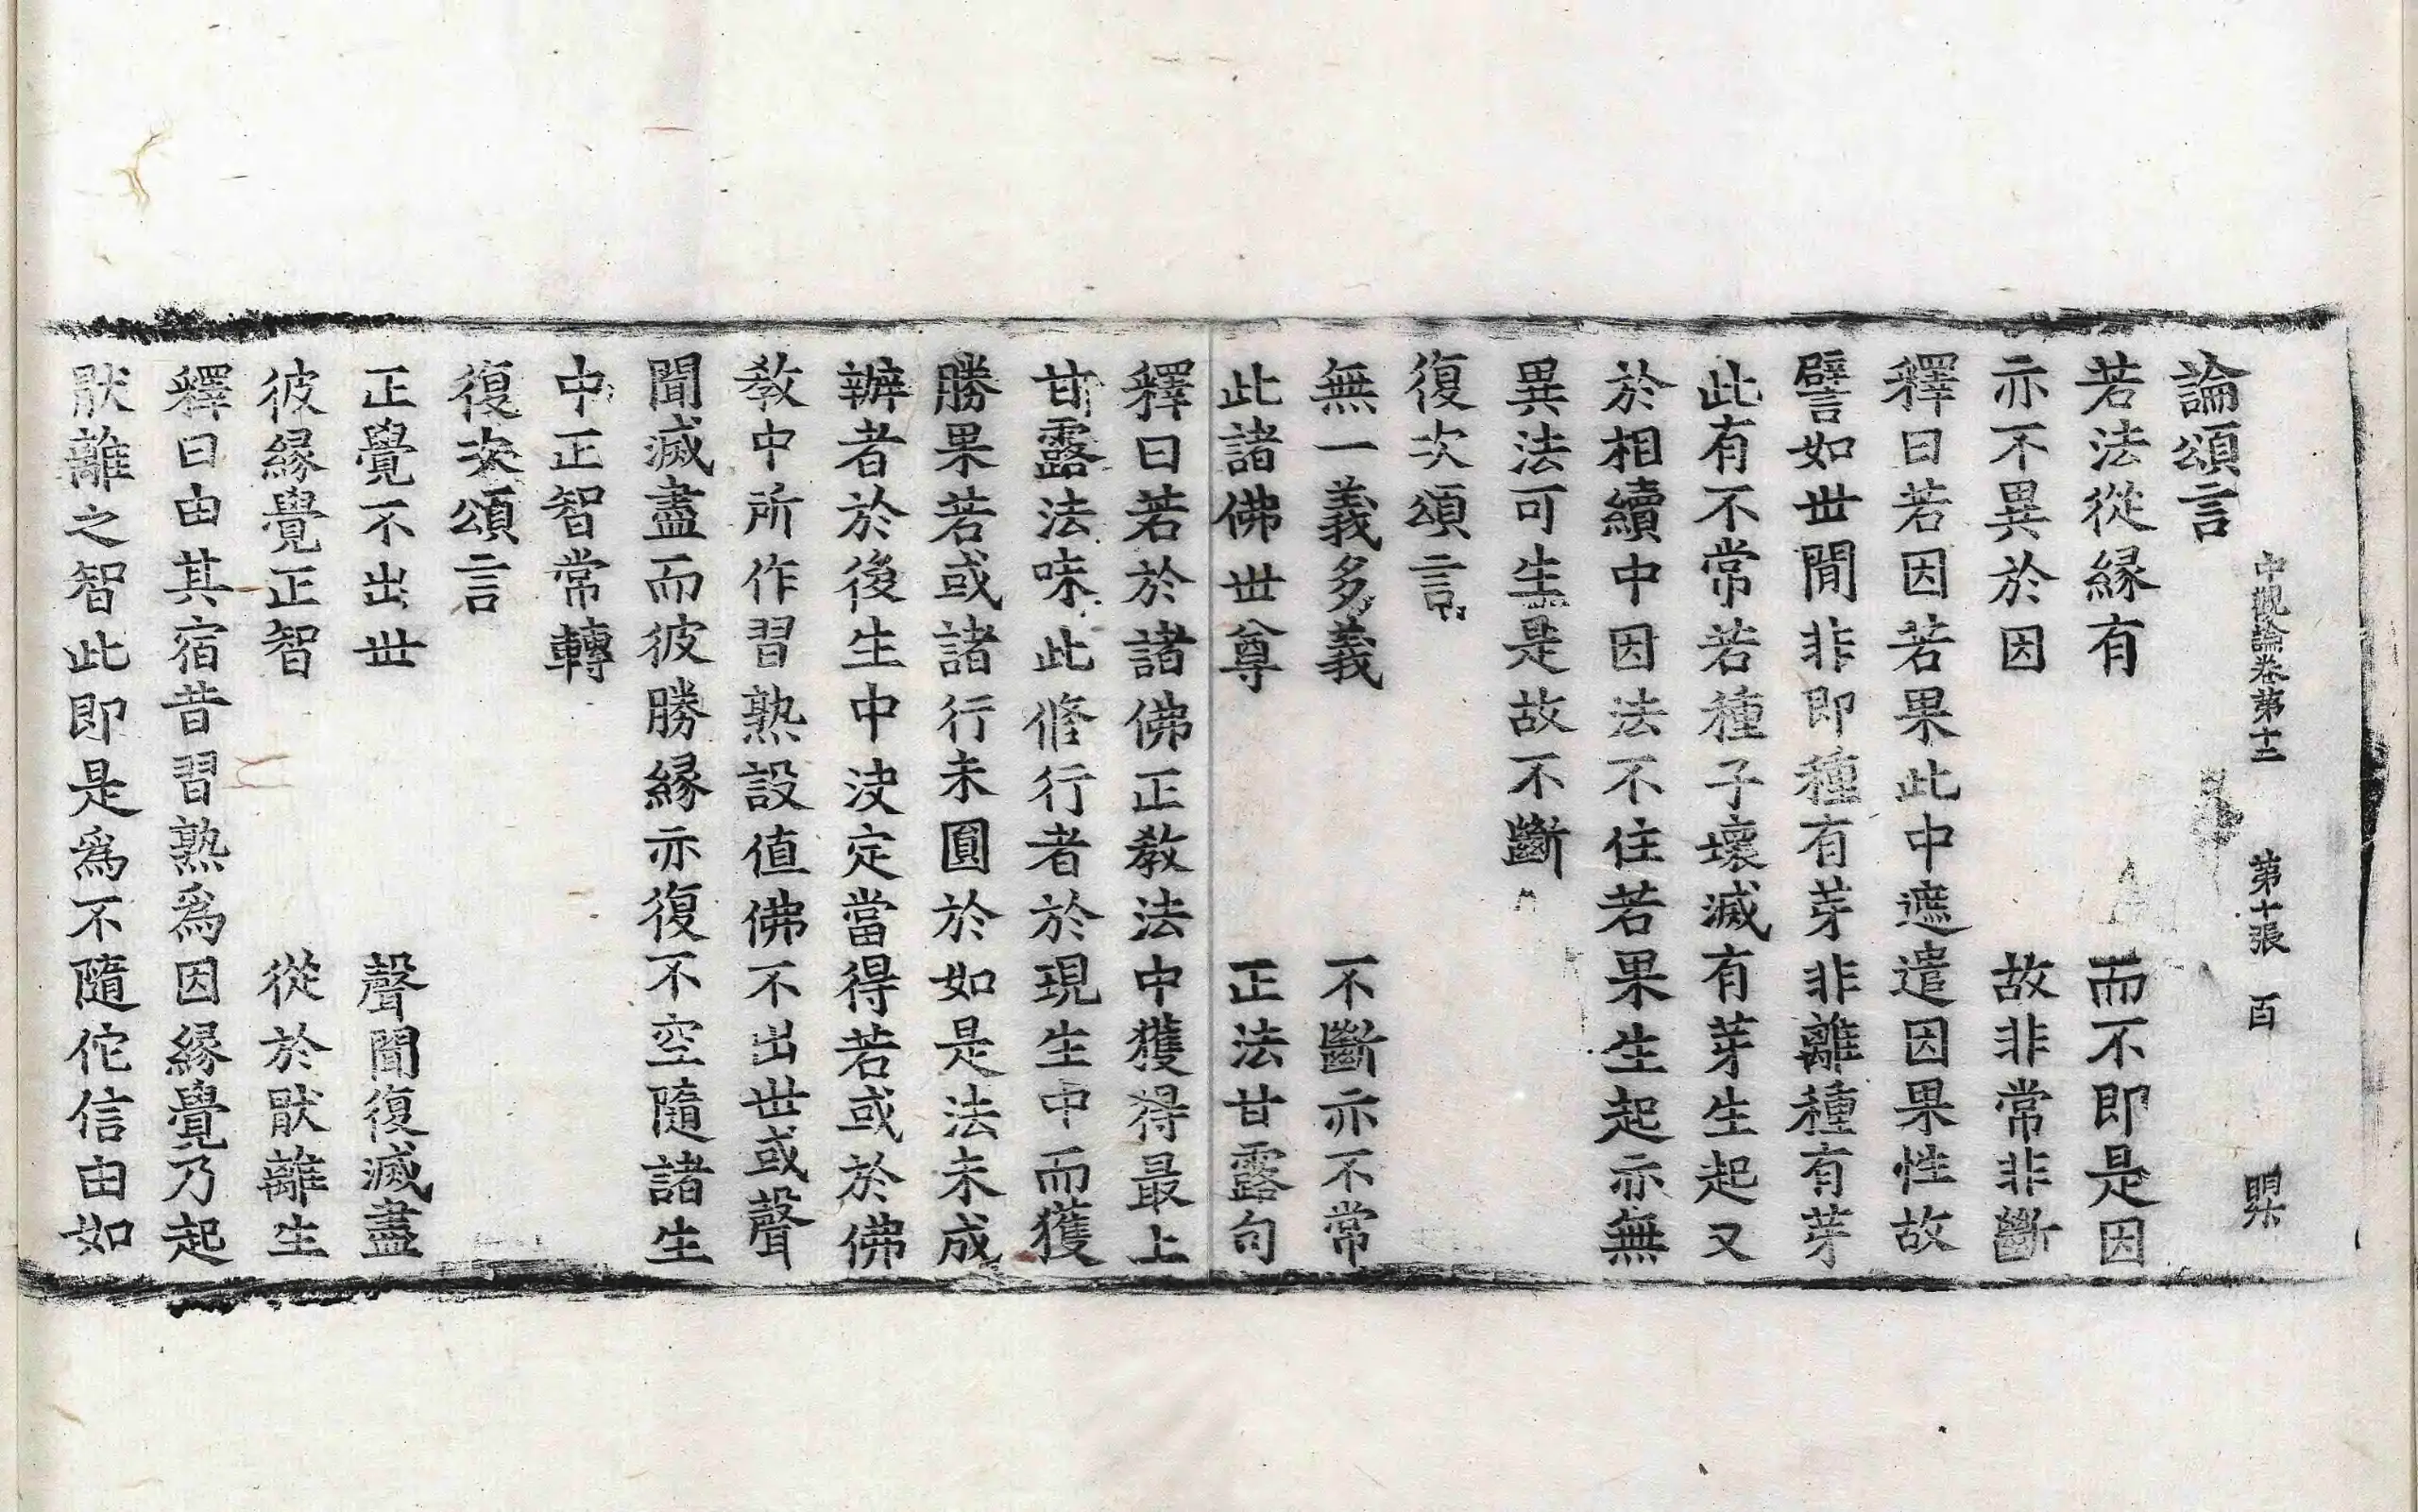 中觀論卷第十二　第十張　百
論頌言
若法從緣有　而不即是因
亦不異於因　故非常非斷
釋曰若因若果此中遮遣因果性故
譬如世間非即種有芽非離種有芽
此有不常若種子壞滅有芽生起又
於相續中因法不住若果生起亦無
異法可生是故不斷
復次頌言
無一義多義　不斷亦不常
此諸佛世尊　正法甘露句
釋曰若於諸佛正教法中獲得最上
甘露法味此修行者於現生中而獲
勝果若或諸行未圓於如是法未成
辦者於後生中決定當得若或於佛
教中所作習熟設值佛不出世或聲
聞滅盡而彼勝緣亦復不空隨諸生
中正智常轉
復次頌言
正覺不出世　聲聞復滅盡
彼緣覺正智　從於猒離生
釋曰由其宿昔習熟為因緣覺乃起
猒離之智此即是為不隨佗信由如